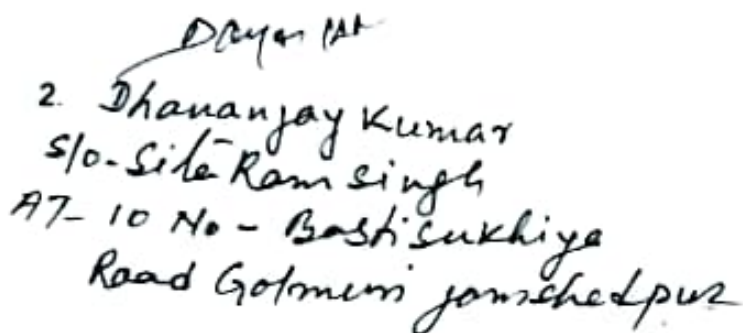 2. Dhananjay Kumar
S/o - Sita Ram Singh
AT- 10 No - Basti sukhiya
Road Golmuri jamshedpur